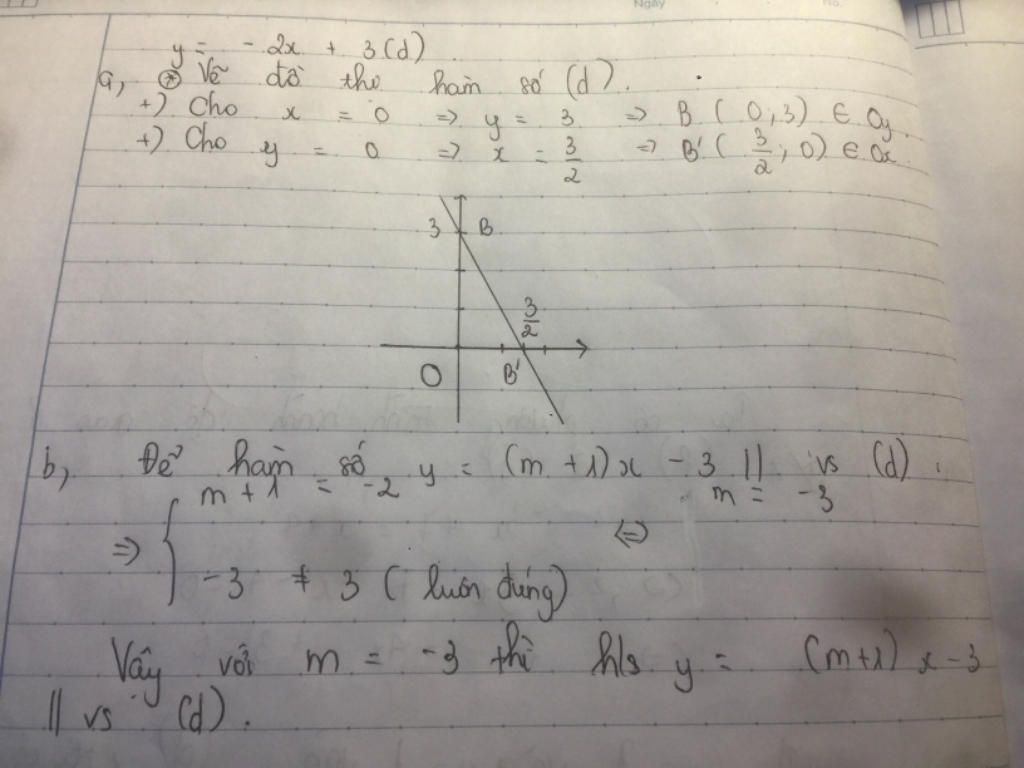 Ngày
No.
y = - 2x + 3 (d)
a, ⊛ Vẽ đồ thị hàm số (d).
+) Cho x = 0 => y = 3 => B ( 0 ; 3) ∈ Oy
+) Cho y = 0 => x = 3/2 => B' ( 3/2 ; 0) ∈ Ox
3 B
3/2
O B'
b, Để hàm số y = (m + 1) x - 3 // vs (d) :
=> { m + 1 = -2 <=> m = -3
-3 ≠ 3 ( luôn đúng)
Vậy với m = -3 thì h/s y = (m+1) x - 3
// vs (d).